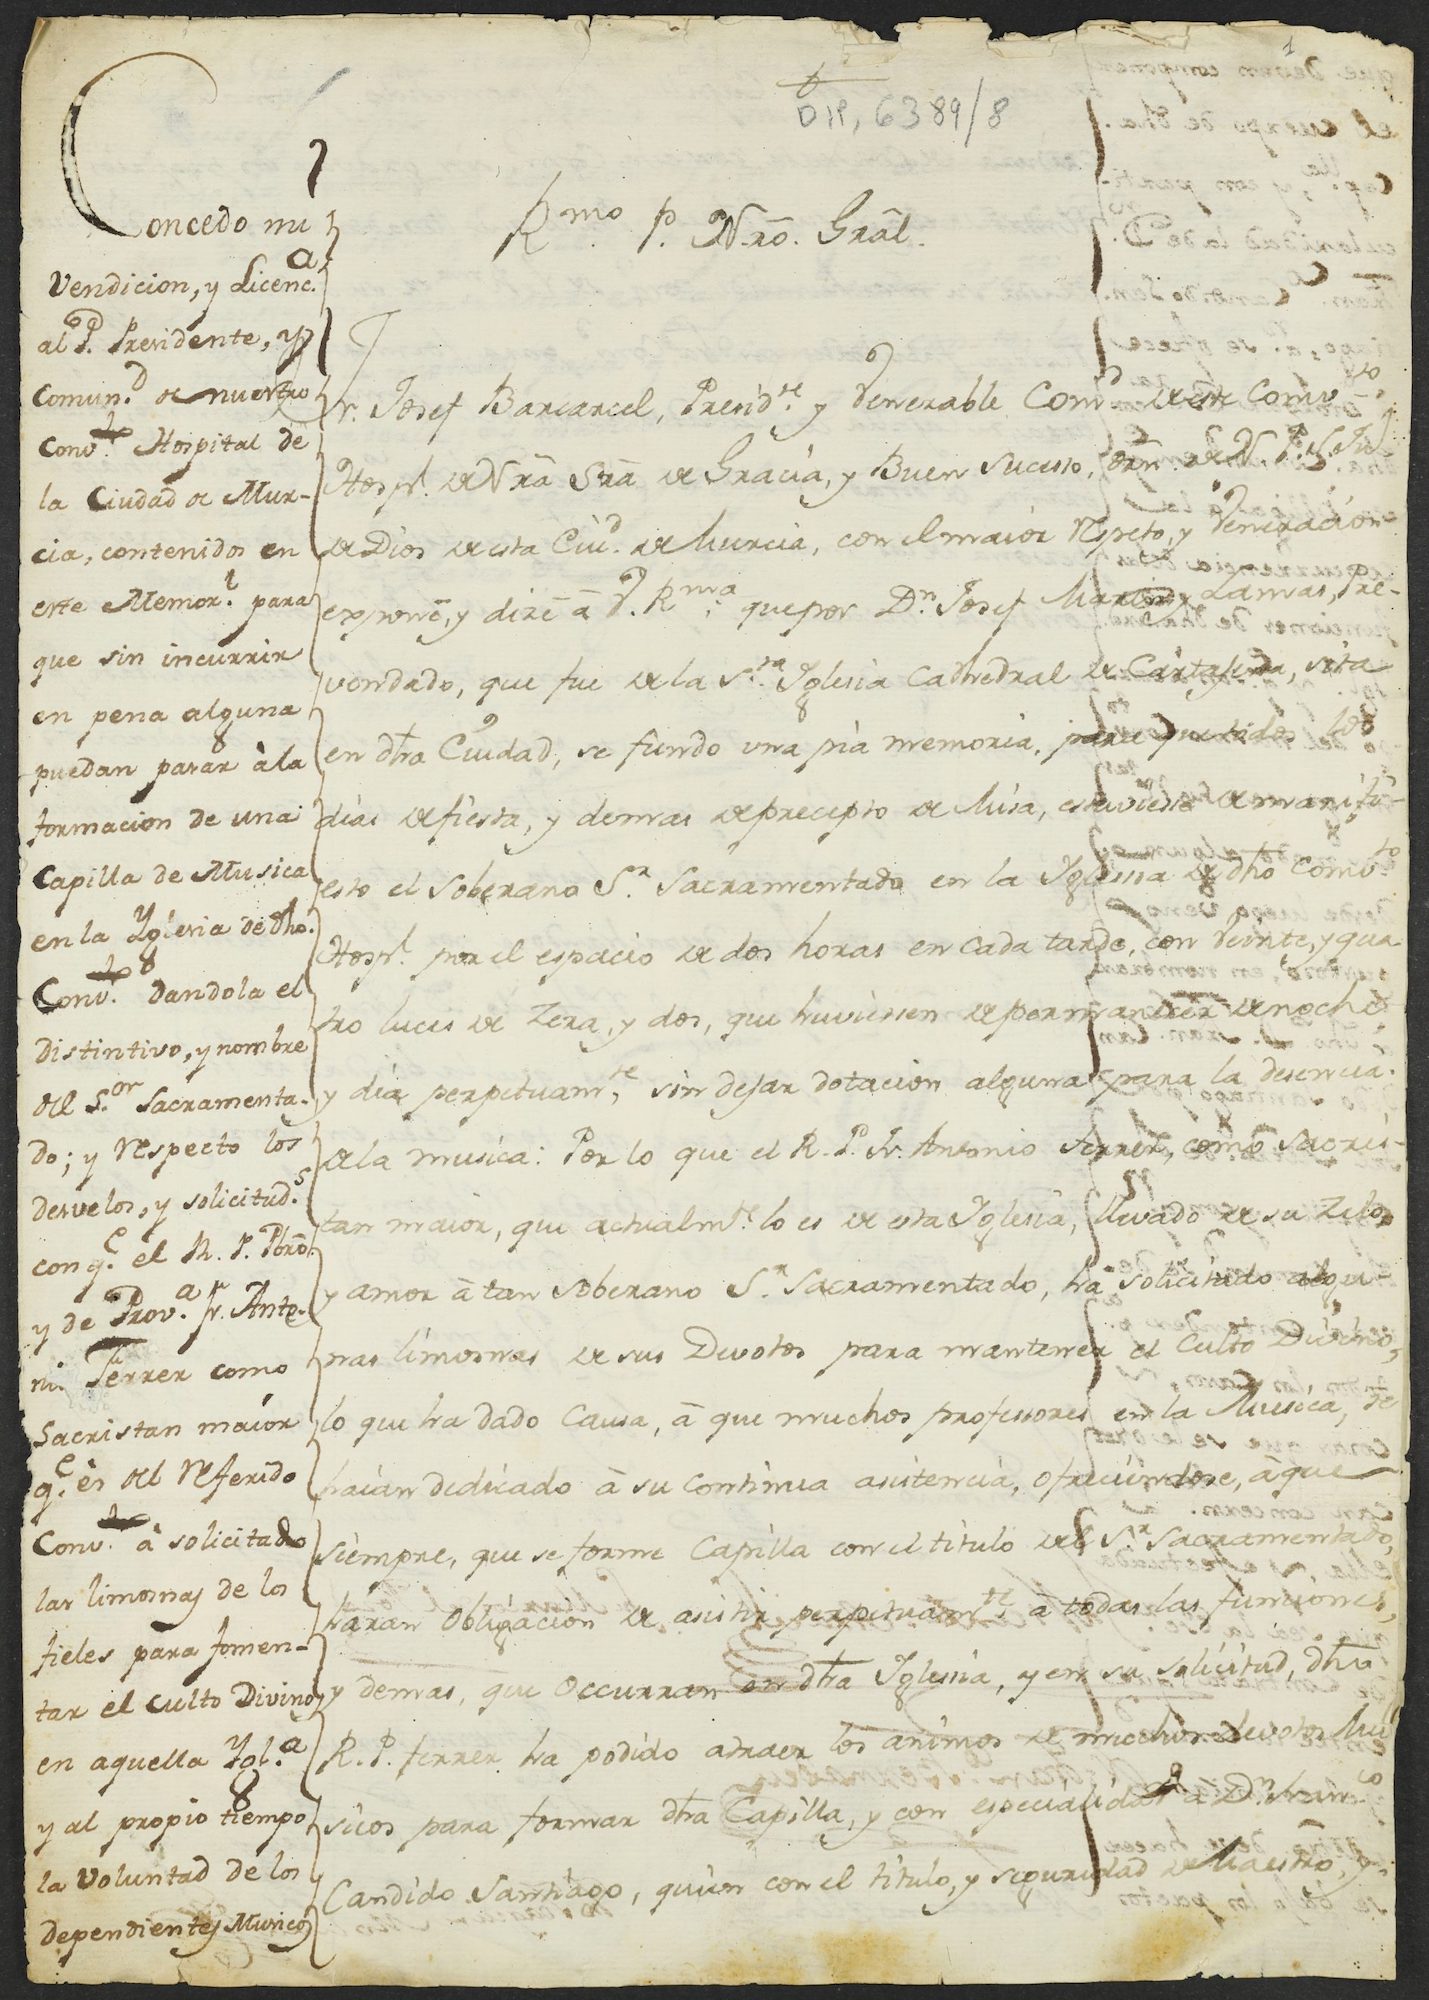 1
DIP, 6389/8
Concedo mi
Vendicion, y Licenc.a
al P. Presidente, y
Comun.d de nuestro
Conv.to Hospital de
la Ciudad de Mur-
cia, contenidos en
este Memor.l para
que sin incurrir
en pena alguna
puedan pasar à la
formacion de una
Capilla de Musica
en la Yglesia de dho.
Conv.to dandola el
distintivo, y nombre
del S.or Sacramenta-
do; y respecto los
desvelos, y solicitud.s
con q.e el R. P. Pbro.
y de Prov.a fr. Anto-
ni. Ferrer como
Sacristan maior
q.e es del referido
Conv.to à solicitado
las limosnas de los
fieles para fomen-
tar el culto Divino
en aquella Ygl.a
y al propio tiempo
la Voluntad de los
dependientes Musicos
R.mo P. Nrõ. Gral.
Fr. Josef Barcarcel, Presid.te y Venerable Com.d de este Comv.to
Hosp.l de Nrã Srã de Gracia, y Buen Sucesso, orn. de N. P. S. Ju.n
de Dios de esta Ciu.d de Murcia, con el maior respeto, y Veneracion
expone, y dice à V. R.ma que por D.n Josef Martin y Lamas, Pre-
vendado, que fue de la S.ta Iglesia Cathedral de Cartajena, sita
en dha Ciudad, se fundo una pia memoria, para que todos los
dias de fiesta, y demas de precepto de Misa, estuviesse de manifi-
esto el Soberano S.r Sacramentado en la Iglesia de dho Comv.to
Hosp.l por el espacio de dos horas en cada tarde, con Veinte, y qua
tro luces de Zera, y dos, que huviessen de permanecer de noche
y dia perpetuam.te, sin dejar dotacion alguna para la desencia
de la musica: Por lo que el R. P. Fr. Antonio Ferrer, como Sacris-
tan maior, que actualm.te lo es de esta Iglesia, llevado de su Zelo,
y amor à tan Soberano S.r Sacramentado, ha solicitado algu-
nas limosnas de sus Devotos para mantener el Culto Divino,
lo que ha dado Causa, à que muchos professores en la Musica, se
haian dedicado à su continua asistencia, ofreciendose, à que
siempre, que se forme Capilla con el titulo del S.r Sacramentado,
haran Obligacion de asistir perpetuam.te à todas las funciones,
y demas, que Occurran en dha Iglesia, y en su solicitud, dho
R. P. Ferrer ha podido atraer los animos de muchos devotos Mu
sicos para formar dha Capilla, y con especialidad à D.n Fran.co
Candido Santiago, quien con el titulo, y seguridad de Maestro, y